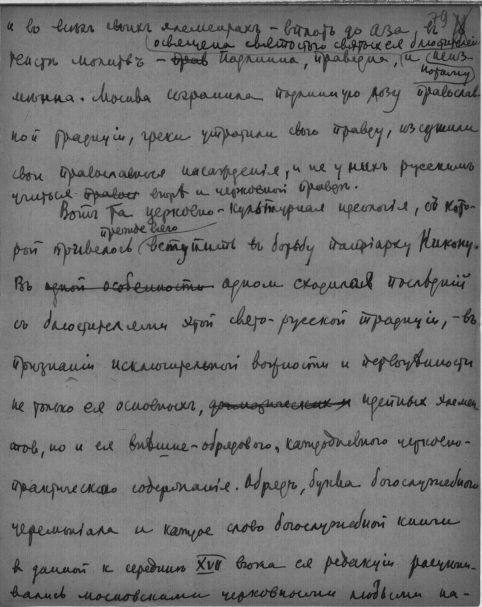 79
и во всѣхъ своихъ элементахъ – вплоть до аза, въ
освящена святостью святыхъ ея блюстителей
текстѣ молитвъ – прав подлинна, праведна, и неиз-
потому
мѣнна. Москва сохранила подлинную дозу православ-
ной традиціи, греки утратили свою правду, изсушили
свои православныя насажденія, и не у нихъ русскимъ
учиться правосл вѣрѣ и церковной правдѣ.
Вотъ та церковно-культурная идеологія, съ кото-
прежде всего
рой пришлось вступить въ борьбу патріарху Никону.
Въ одной особенности одномъ сходился послѣдній
съ блюстителями этой свято-русской традиціи, – въ
признаніи исключительной важности и первоцѣнности
не только ея основныхъ, догматическихъ и идейныхъ элемен
товъ, но и ея внѣшне-обрядового, каждодневнаго церковно-
практическаго содержанія. Обрядъ, буква богослужебнаго
церемоніала и каждое слово богослужебной книги
въ данной к серединѣ XVII вѣка ея редакціи расцѣни-
вались московскими церковными людьми на-